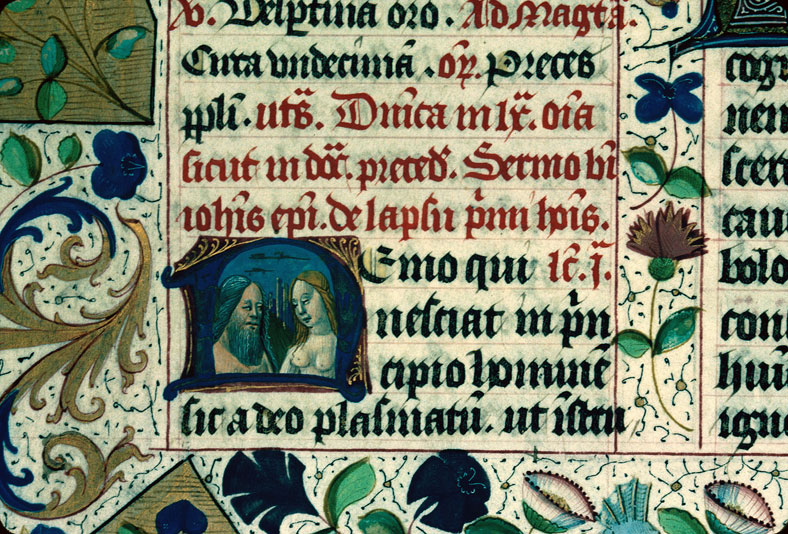 v. Delprima oro. Ad Magt̃a.
Circa vndecimã. oꝝ. Preces
ppl̃i. uts̃. Dñica in lx̃. oĩa
sicut in dõc̃. preced̃. Sermo bt̃i
ioh̃is ep̃i. de lapsu p̃mi ho̾is.
Nemo qui lc̃. j̃.
nesciat in p̃n
cipio hominẽ
sic a deo plasmatũ. ut ĩstru
cogn
nen
scen
cau
bolo
con
huiu
igne